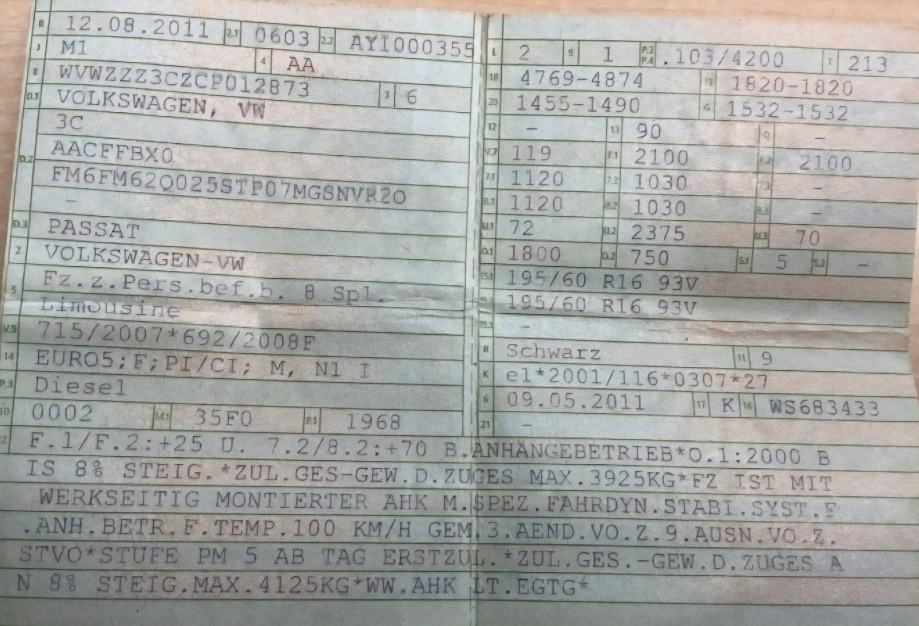 B 12.08.2011 2.1 0603 2.2 AYI000355
J M1 4 AA
E WVWZZZ3CZCP012873 3 6
D.1 VOLKSWAGEN, VW
3C
D.2 AACFFBX0
FM6FM62Q025STP07MGSNVR2O
-
D.3 PASSAT
2 VOLKSWAGEN-VW
5 Fz.z.Pers.bef.b. 8 Spl.
Limousine
V.9 715/2007*692/2008F
14 EURO5;F;PI/CI; M, N1 I
P.3 Diesel
10 0002 14.1 35F0 P.1 1968
L 2 9 1 P.2 P.4 .103/4200 T 213
18 4769-4874 19 1820-1820
20 1455-1490 G 1532-1532
12 - 13 90 Q -
V.7 119 F.1 2100 F.2 2100
7.1 1120 7.2 1030 7.3 -
8.1 1120 8.2 1030 8.3 -
U.1 72 U.2 2375 U.3 70
O.1 1800 O.2 750 S.1 5 S.2 -
15.1 195/60 R16 93V
15.2 195/60 R16 93V
15.3 -
R Schwarz 11 9
K e1*2001/116*0307*27
6 09.05.2011 17 K 16 WS683433
21 -
22 F.1/F.2:+25 U. 7.2/8.2:+70 B.ANHÄNGEBETRIEB*O.1:2000 B
IS 8% STEIG.*ZUL.GES-GEW.D.ZUGES MAX.3925KG*FZ IST MIT
WERKSEITIG MONTIERTER AHK M.SPEZ.FAHRDYN.STABI.SYST.F
.ANH.BETR.F.TEMP.100 KM/H GEM.3.AEND.VO.Z.9.AUSN.VO.Z.
STVO*STUFE PM 5 AB TAG ERSTZUL.*ZUL.GES.-GEW.D.ZUGES A
N 8% STEIG.MAX.4125KG*WW.AHK LT.EGTG*